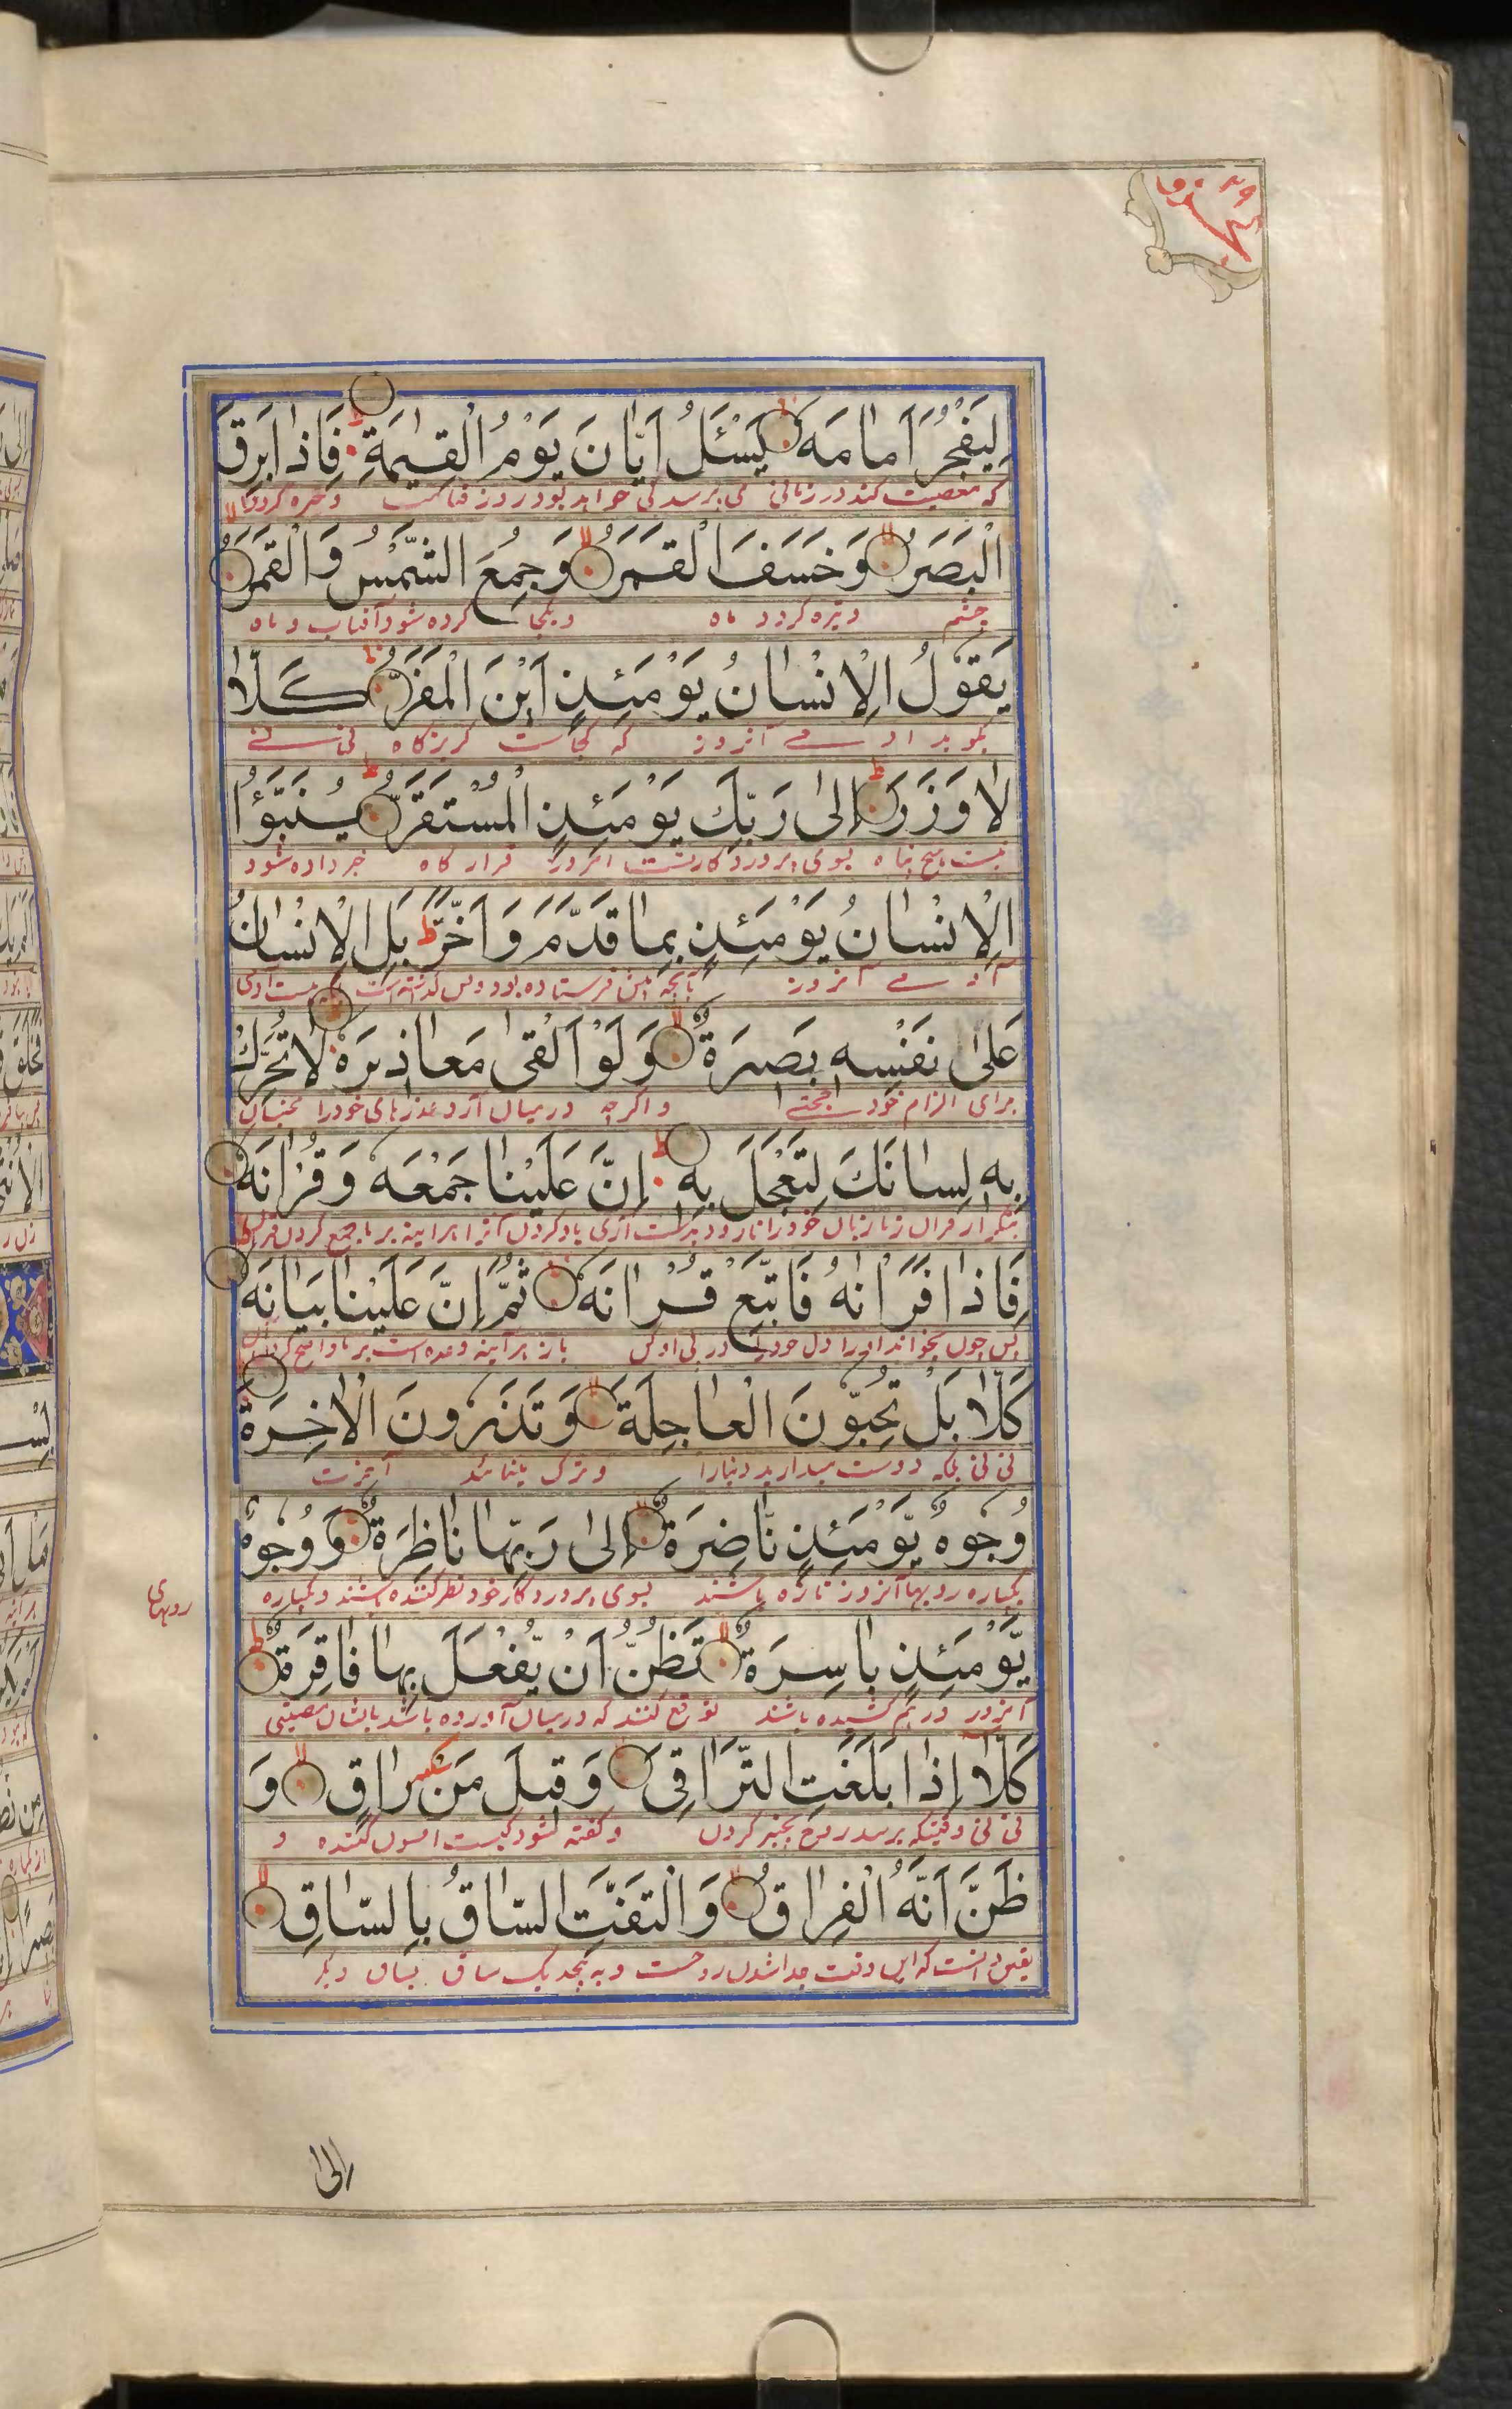 لِيَفْجُرَ اَمَامَهُ يَسْئَلُ اَيَّانَ يَوْمُ الْقِيٰمَةِ فَاِذَا بَرِقَ
که معصیت کند در زمانی می پرسد کی خواهد بود روز قیامت و خیره گردد
الْبَصَرُ وَخَسَفَ الْقَمَرُ وَجُمِعَ الشَّمْسُ وَالْقَمَرُ
چشم و تیره گردد ماه و یکجا کرده شود آفتاب و ماه
يَقُوْلُ الْاِنْسَانُ يَوْمَئِذٍ اَيْنَ الْمَفَرُّ كَلَّا
بگوید آدمی آنروز که کجاست گریزگاه نی نی
لَا وَزَرَ اِلٰى رَبِّكَ يَوْمَئِذٍ الْمُسْتَقَرُّ يُنَبَّؤُا
نیست هیچ پناه بسوی پروردگار تست امروز قرار گاه خبر داده شود
الْاِنْسَانُ يَوْمَئِذٍ بِمَا قَدَّمَ وَاَخَّرَ بَلِ الْاِنْسَانُ
آدمی آنروز بآنچه پیش فرستاده بود و پس گذاشته است بلکه هست آدمی
عَلٰى نَفْسِهٖ بَصِيرَةٌ وَلَوْ اَلْقٰى مَعَاذِيرَهُ لَا تُحَرِّكْ
برای الزام خود حجتی و اگرچه درمیان آرد عذرهای خود را مجنبان
بِهٖ لِسَانَكَ لِتَعْجَلَ بِهٖ اِنَّ عَلَيْنَا جَمْعَهُ وَقُرْاٰنَهُ
بتکرار قرآن زبان خود را تا زود بدست آری یاد کردن آنرا هرآینه بر ما جمع کردن
فَاِذَا قَرَاْنٰهُ فَاتَّبِعْ قُرْاٰنَهُ ثُمَّ اِنَّ عَلَيْنَا بَيَانَهُ
پس چون بخواند او را دل خود را در پی او کن باز هرآینه وعده است بر ما واضح کردن آن
كَلَّا بَلْ تُحِبُّوْنَ الْعَاجِلَةَ وَتَذَرُوْنَ الْاٰخِرَةَ
نی نی بلکه دوست میدارید دنیا را و ترک آخرت
وُجُوْهٌ يَّوْمَئِذٍ نَّاضِرَةٌ اِلٰى رَبِّهَا نَاظِرَةٌ وَوُجُوْهٌ
یکپاره رویها آنروز تازه باشند بسوی پروردگار خود نظر کننده باشند و یکپاره
رویهای
يَّوْمَئِذٍ بَاسِرَةٌ تَظُنُّ اَنْ يُّفْعَلَ بِهَا فَاقِرَةٌ
آنروز درهم کشیده باشند توقع کنند که درمیان آورده باشد بایشان مصیبتی
كَلَّا اِذَا بَلَغَتِ التَّرَاقِيَ وَقِيلَ مَنْ رَاقٍ وَ
نی نی وقتیکه برسد روح بچنبر گردن و گفته شود کیست افسون کننده و
ظَنَّ اَنَّهُ الْفِرَاقُ وَالْتَفَّتِ السَّاقُ بِالسَّاقِ
یقین دانست که این وقت جدا شدن روحست و به پیچد یک ساق بساق دیگر
اِلٰى